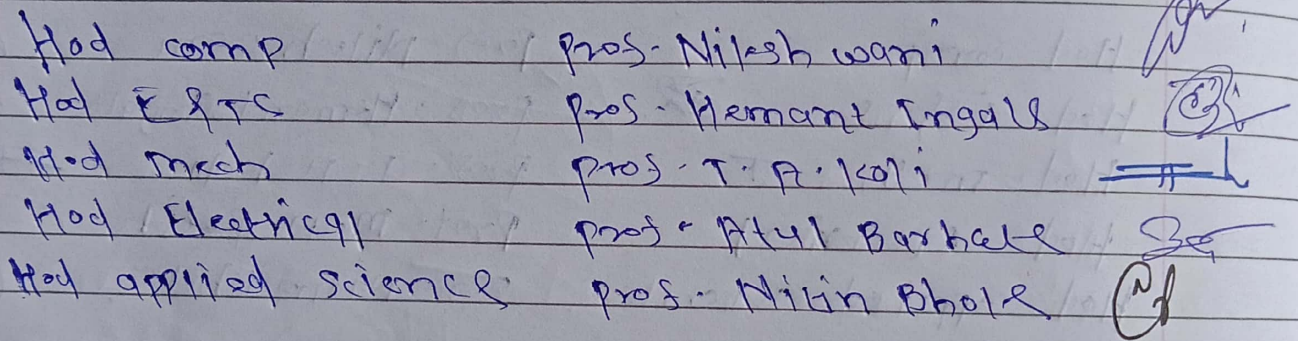 Hod comp Prof. Nilesh wani
Hod E&TC Prof. Hemant Ingale
Hod mech Prof. T. A. Koli
Hod Electrical Prof. Atul Barhate
Hod applied science Prof. Nitin Bhole